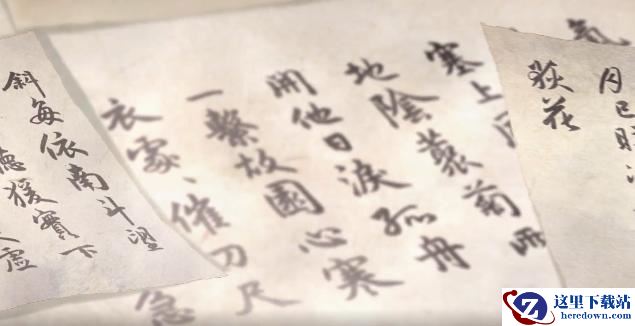 月已映
荻花
氣
塞上
地陰叢菊兩
開他日淚孤舟
一繫故園心寒
衣處、催刀尺
急
斜每依南斗望
猿實下
虛
这里下载站
heredown.com